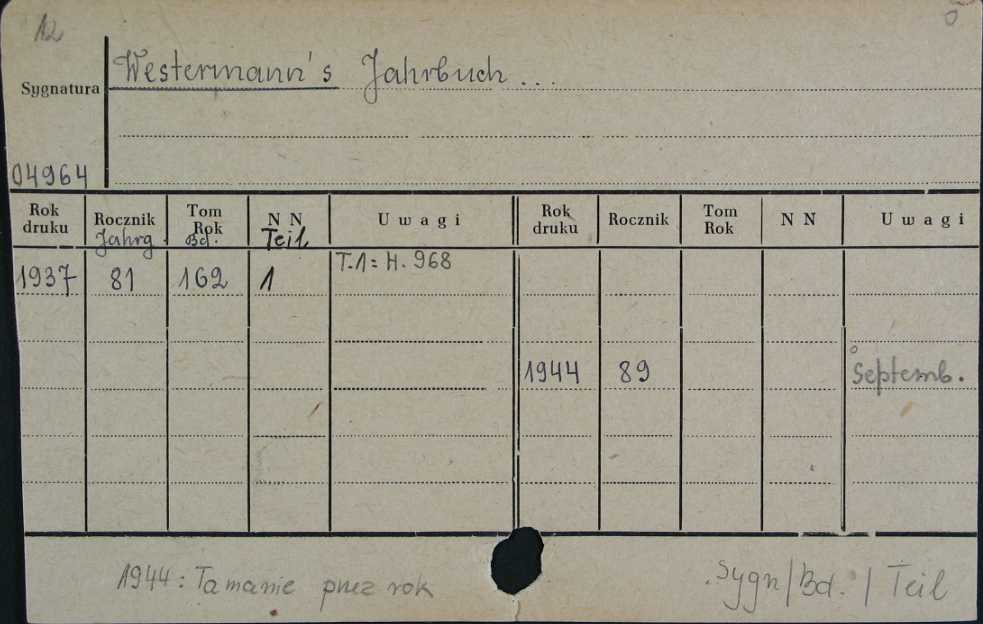 12
Westermann's Jahrbuch ...
Sygnatura
04964
Rok druku Rocznik Tom Rok N N Uwagi Rok druku Rocznik Tom Rok N N Uwagi
Jahrg. Bd. Teil
T.1: H. 968
1937 81 162 1
1944 89 Septemb.
1944: Tamanie przez rok
Sygn/Bd./Teil